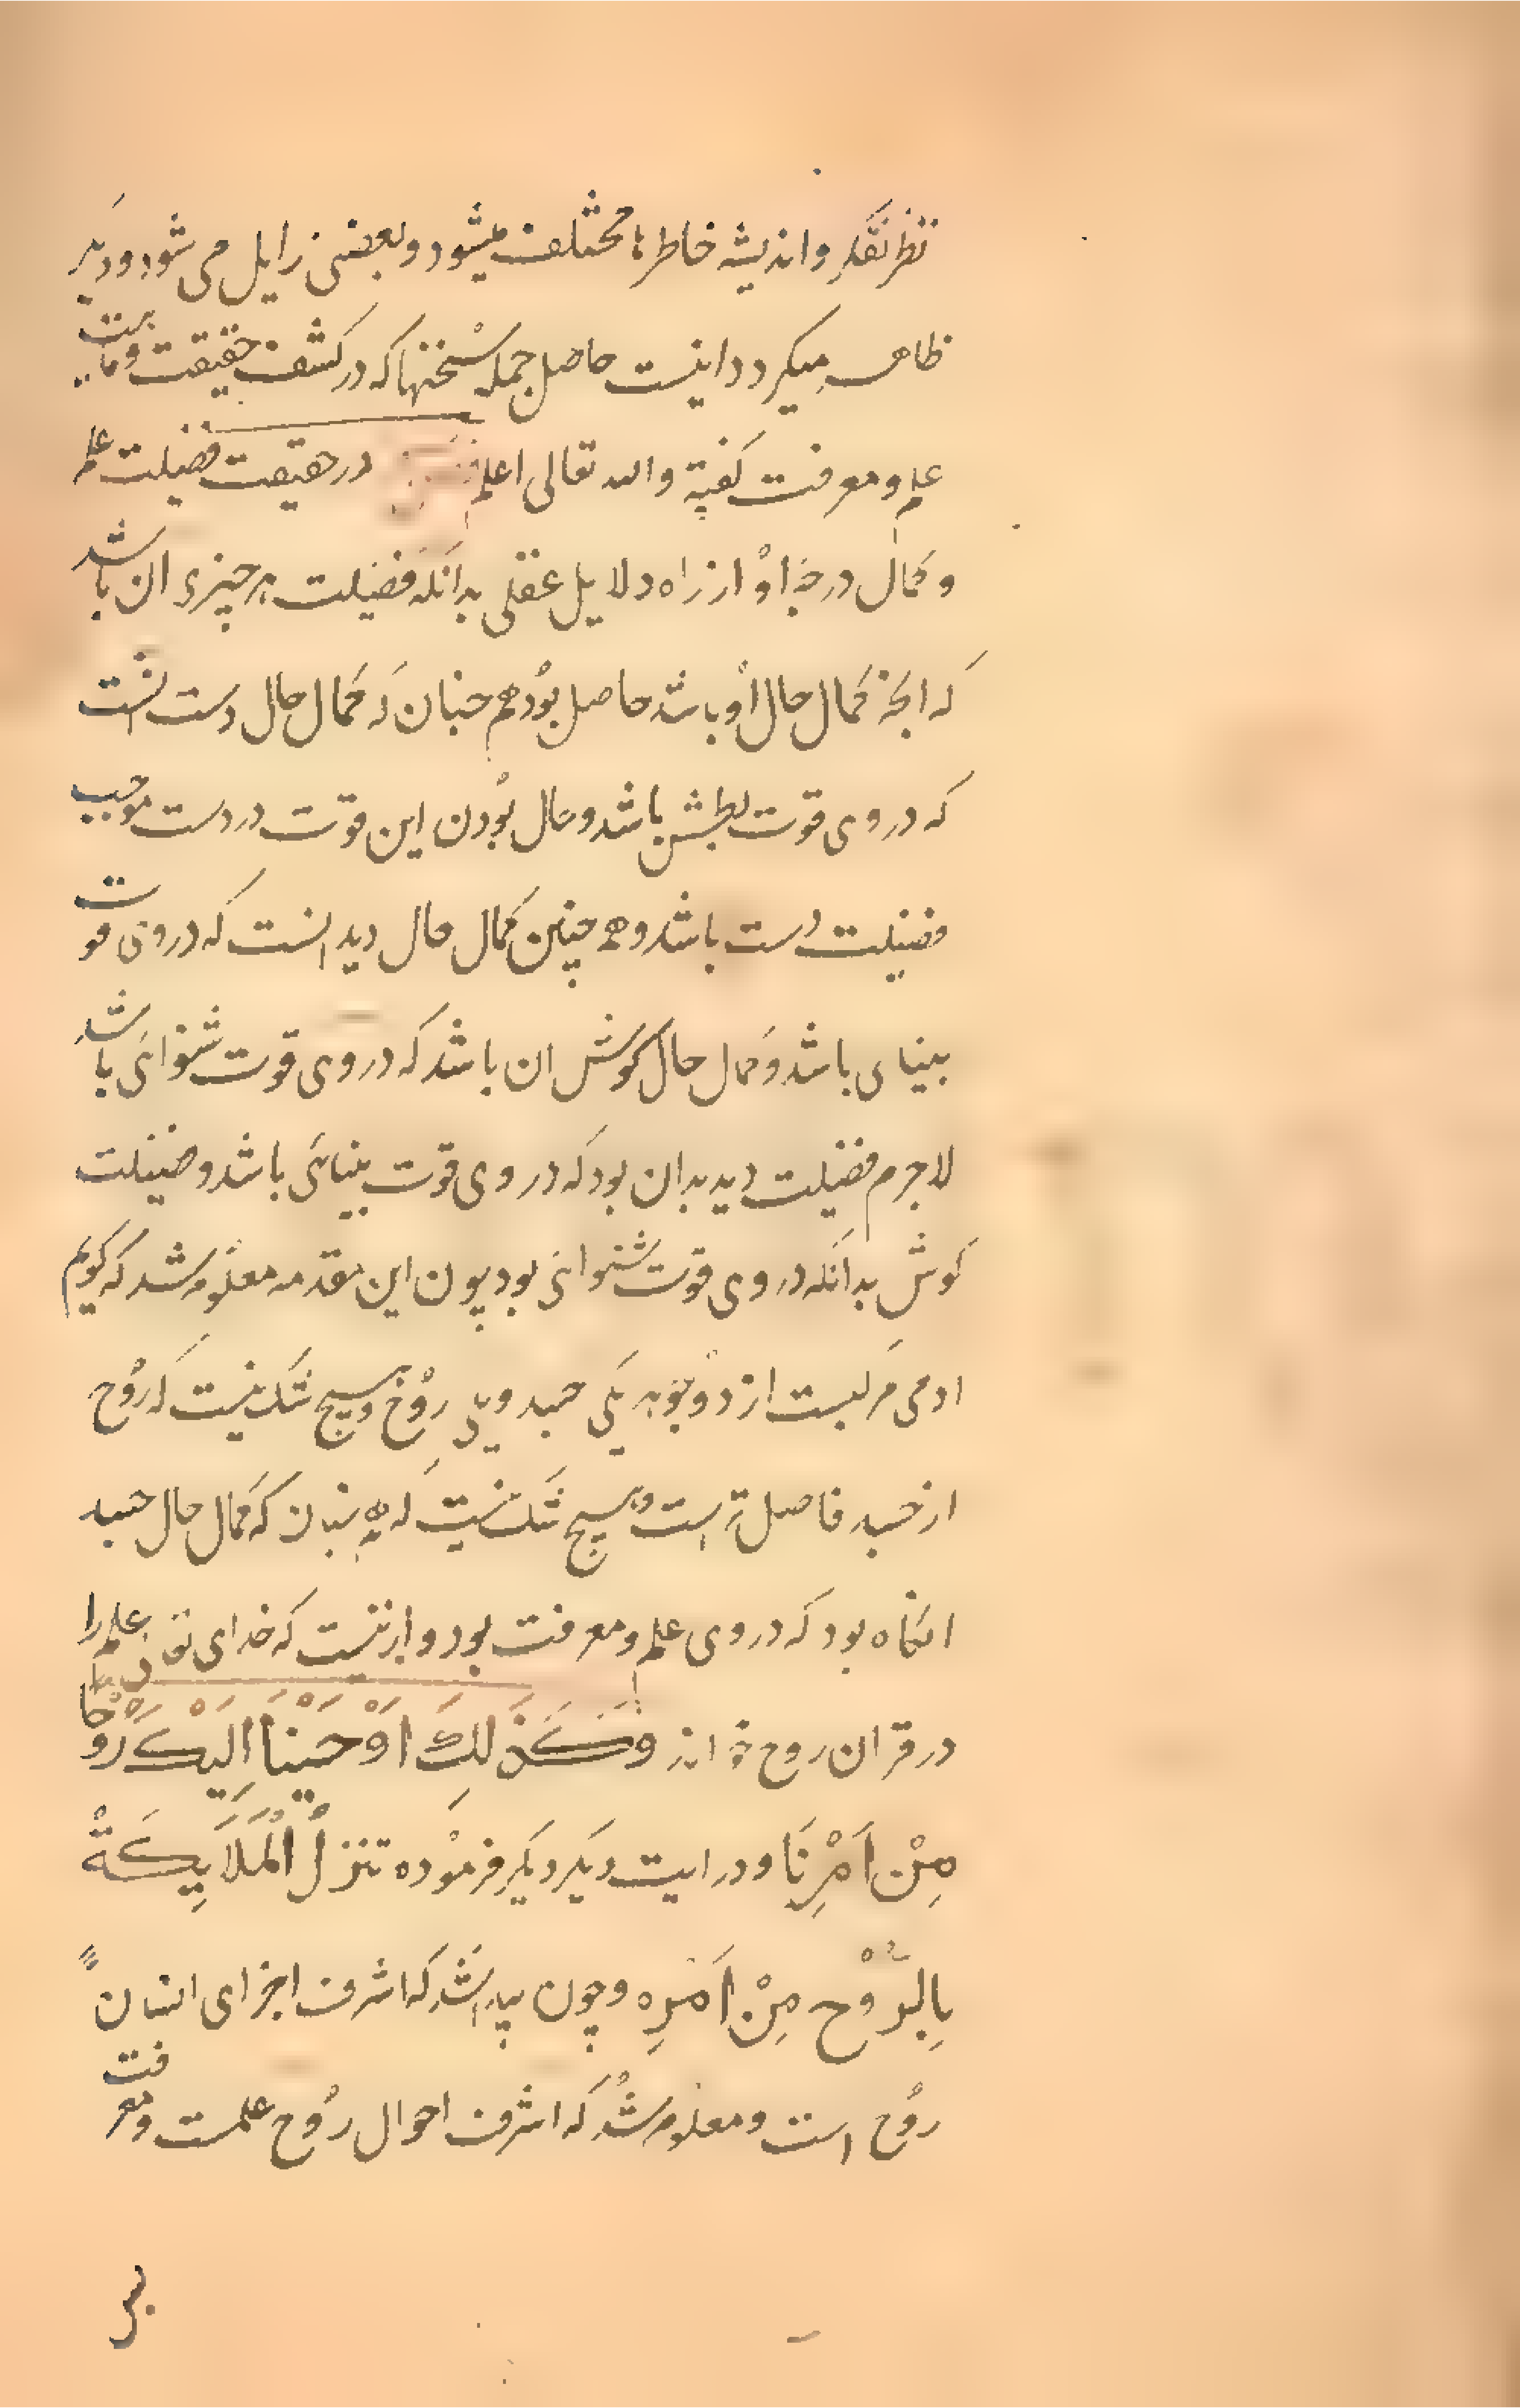 نظر تفکر و اندیشه خاطرها مختلف میشود و بعضی زایل می شود و دیگر
ظاهر میکردد اینست حاصل جمله سخنها که در کشف حقیقت و ماهیت
علم و معرفت کفته والله تعالی اعلم در حقیقت فضیلت علم
و کمال درجۀ اوْ از راه دلایل عقلی بدانکه فضیلت هر چیزی ان باشد
که انجه کمال حال اوْ باشد حاصل بوْد هم جنان که کمال حال دست انست
که در وی قوت بطش باشد و حال بوْدن این قوت در دست موجب
فضیلت دست باشد و هم چنین کمال حال دیده انست که در وی قوت
بینای باشد و کمال حال کوش ان باشد که در وی قوت شنوائی باشد
لاجرم فضیلت دیده بدان بود که در وی قوت بینائی باشد و فضیلت
کوش بدانکه در وی قوت شنوائی بود چون این مقدمه معلوم شد که کویم
ادمی مرکبست از دوْ جوْهر یکی جسد و یکی روْح و هیچ شک نیست که روْح
از جسد فاضل تر است و هیچ شک نیست که همچنان که کمال حال جسد
انکاه بود که در وی علم و معرفت بود و ازینست که خدای تعالی علم را
در قران روح خواند وَكَذَلِكَ اَوْحَيْنَا اِلَيْكَ رُوْحًا
مِنْ اَمْرِنَا و در ایت دیکر دیکر فرموْده تنزلُ الْمَلَايِكَةْ
بِالرُّوْحِ مِنْ اَمْرِه و چون پیدا شد که اشرف اجزای انسان
روْح است و معلوْم شد که اشرف احوال روْح علمست و معرفت
پس